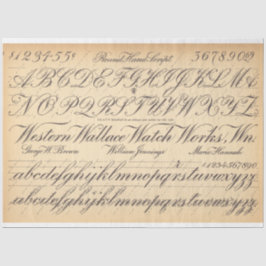 $1234 5 Round Hand Script. 567890
ABCDEFGHIJKLM
NOPQRSTUVWXYZ
Western Wallace Watch Works, Wn.
George W. Brown William Jennings Maria Hannah
$1234567890
abcdefghijklmnopqrstuvwxyz
abcdefghijklmnopqrstuvwxyz